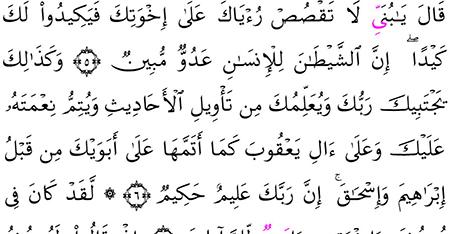 قَالَ يَـٰبُنَىِّ لَا تَقْصُصْ رُءْيَاكَ عَلَىٰٓ إِخْوَتِكَ فَيَكِيدُوا۟ لَكَ
كَيْدًا ۖ إِنَّ الشَّيْطَـٰنَ لِلْإِنسَـٰنِ عَدُوٌّ مُّبِينٌ ۝٥ وَكَذَٰلِكَ
يَجْتَبِيكَ رَبُّكَ وَيُعَلِّمُكَ مِن تَأْوِيلِ الْأَحَادِيثِ وَيُتِمُّ نِعْمَتَهُۥ
عَلَيْكَ وَعَلَىٰٓ ءَالِ يَعْقُوبَ كَمَآ أَتَمَّهَا عَلَىٰٓ أَبَوَيْكَ مِن قَبْلُ
إِبْرَٰهِيمَ وَإِسْحَـٰقَ ۚ إِنَّ رَبَّكَ عَلِيمٌ حَكِيمٌ ۝٦ ۞ لَّقَدْ كَانَ فِى